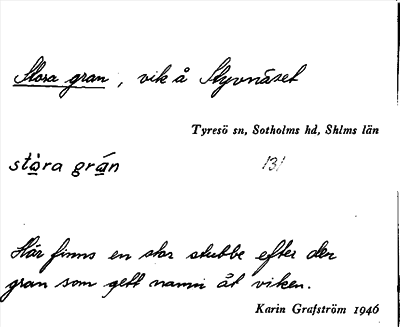 Stora gran, vik å Styvnäset
Tyresö sn, Sotholms hd, Shlms län
stòra grán 131
Här finns en stor stubbe efter den
gran som gett namn åt viken.
Karin Grafström 1946